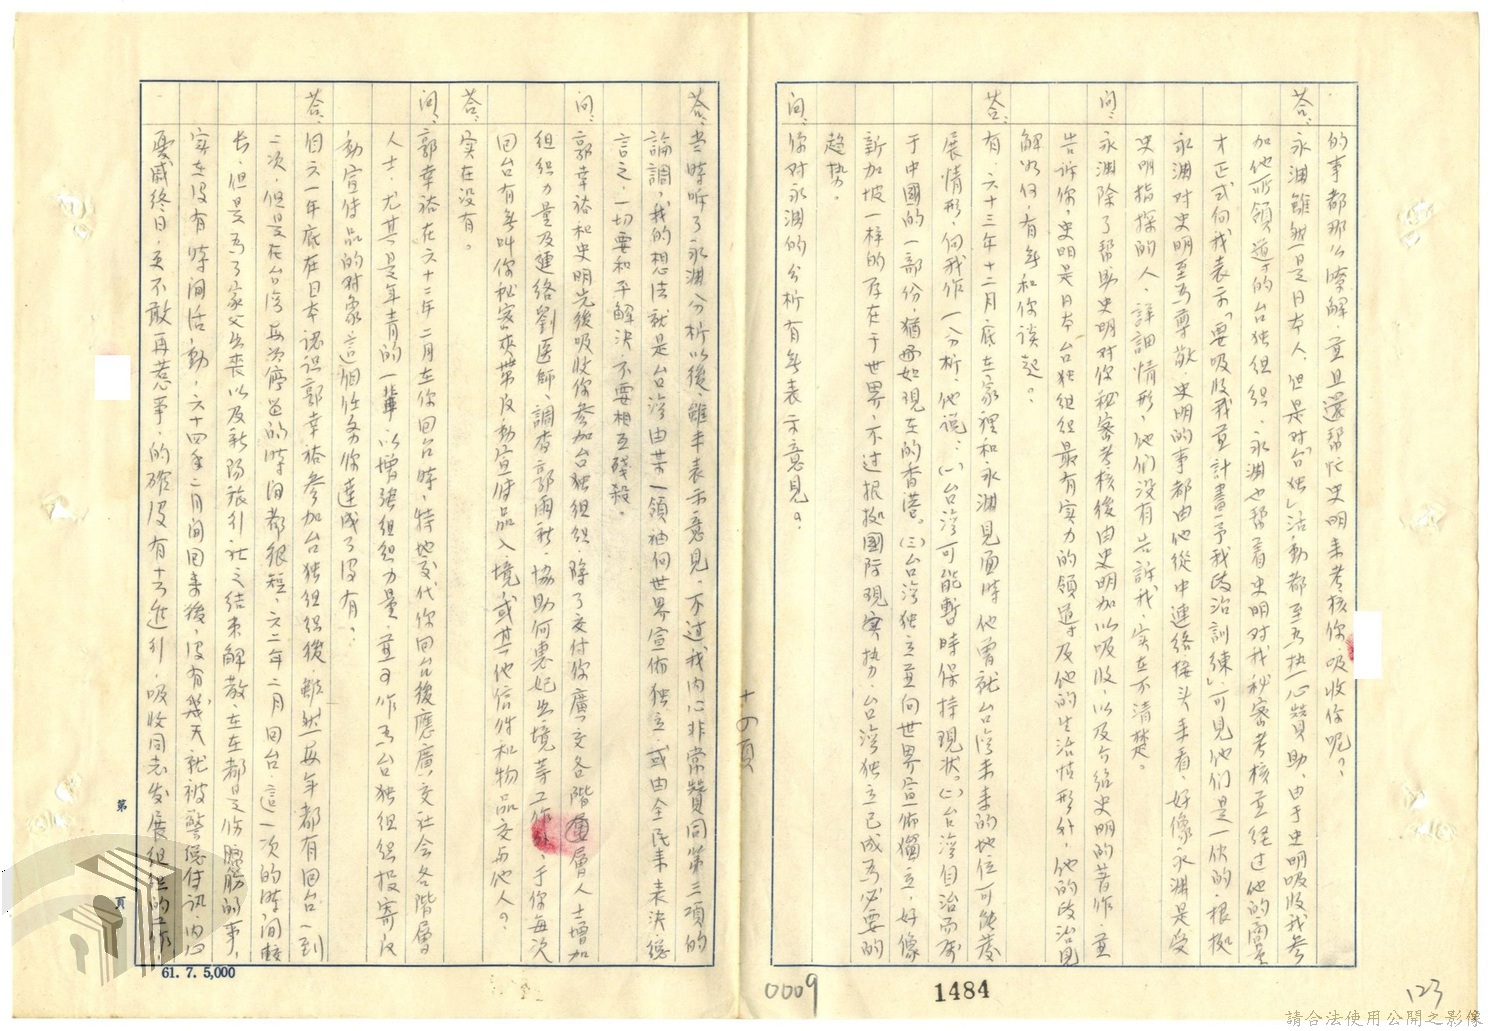 的事都那么瞭解，並且還幫忙史明來考核你吸收你呢？
答：永淵雖然是日本人，但是对「台独」活動都至为热心贊助，由于史明吸收我参
加他所領導的台独組织，永淵也幫着史明对我秘密考核並经过他的商量
才正式向我表示「要吸收我並計畫予我政治訓練」，可見他们是一伙的，根拠
永淵对史明至为尊敬，史明的事都由他從中連絡接头来看，好像永淵是受
史明指揮的人，詳細情形，他们沒有告訴我，实在不清楚。
问：永淵除了幫助史明对你秘密考核後由史明加以吸收，以及介绍史明的著作，並
告訴你，史明是日本台独組組最有实力的領導及他的生活情形外，他的政治見
解如何，有無和你谈起？
答：有，六十三年十二月底在家裡和永淵見面時，他曾就台湾未来的地位可能發
展情形，向我作一分析，他說：(一)台湾可能暫時保持現状。(二)台湾自治而屬
于中國的一部份，猶如現在的香港。(三)台湾独立並向世界宣佈獨立，好像
新加坡一样的存在于世界，不过根拠國际現实势，台湾独立已成为必要的
趋势。
问：你对永淵的分析有無表示意見？
十四頁
0009
1484
123
答：当時听了永淵分析以後，雖未表示意見，不过我内心非常贊同第三項的
論調，我的想法就是台湾由某一領袖向世界宣佈独立，或由全民来表决，總
言之，一切要和平解决，不要相互残殺。
问：郭幸裕和史明先後吸收你参加台独組织，除了交付你廣交各階層人士增加
組织力量及連絡劉医師，調查郭雨新，協助何惠妃出境等工作外，于你每次
回台有無叫你秘密夾带反動宣傳品入境，或其他信件和物品交与他人？
答：实在没有。
问：郭幸裕在六十二年二月在你回台時，特地交代你回台後應廣交社会各階層
人士，尤其是年青的一輩，以增强組织力量，並可作为台独組织投寄反
動宣传品的对象，這個任务你達成了没有？
答：自六一年底在日本認识郭幸裕参加台独組织後，雖然每年都有回台一到
二次，但是在台湾每次停留的時间都很短，六二年二月回台，這一次的時间較
長，但是为了家父出丧以及新陽旅行社之结束解散，在在都是伤腦筋的事，
实在没有時间活動，六十四年二月间回来後，没有幾天就被警总传讯，内心
憂慼终日，更不敢再惹事，的確没有去進行，吸收同志发展組织的工作，
第 頁
61. 7. 5,000
請合法使用公開之影像